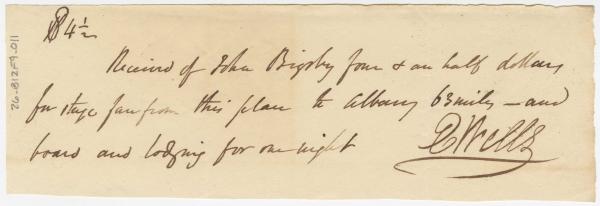 $4½
Received of John Bigsby four & an half dollars
for stage fare from this place to Albany 63 miles — and
board and lodging for one night
Wells
26-B12F9-011